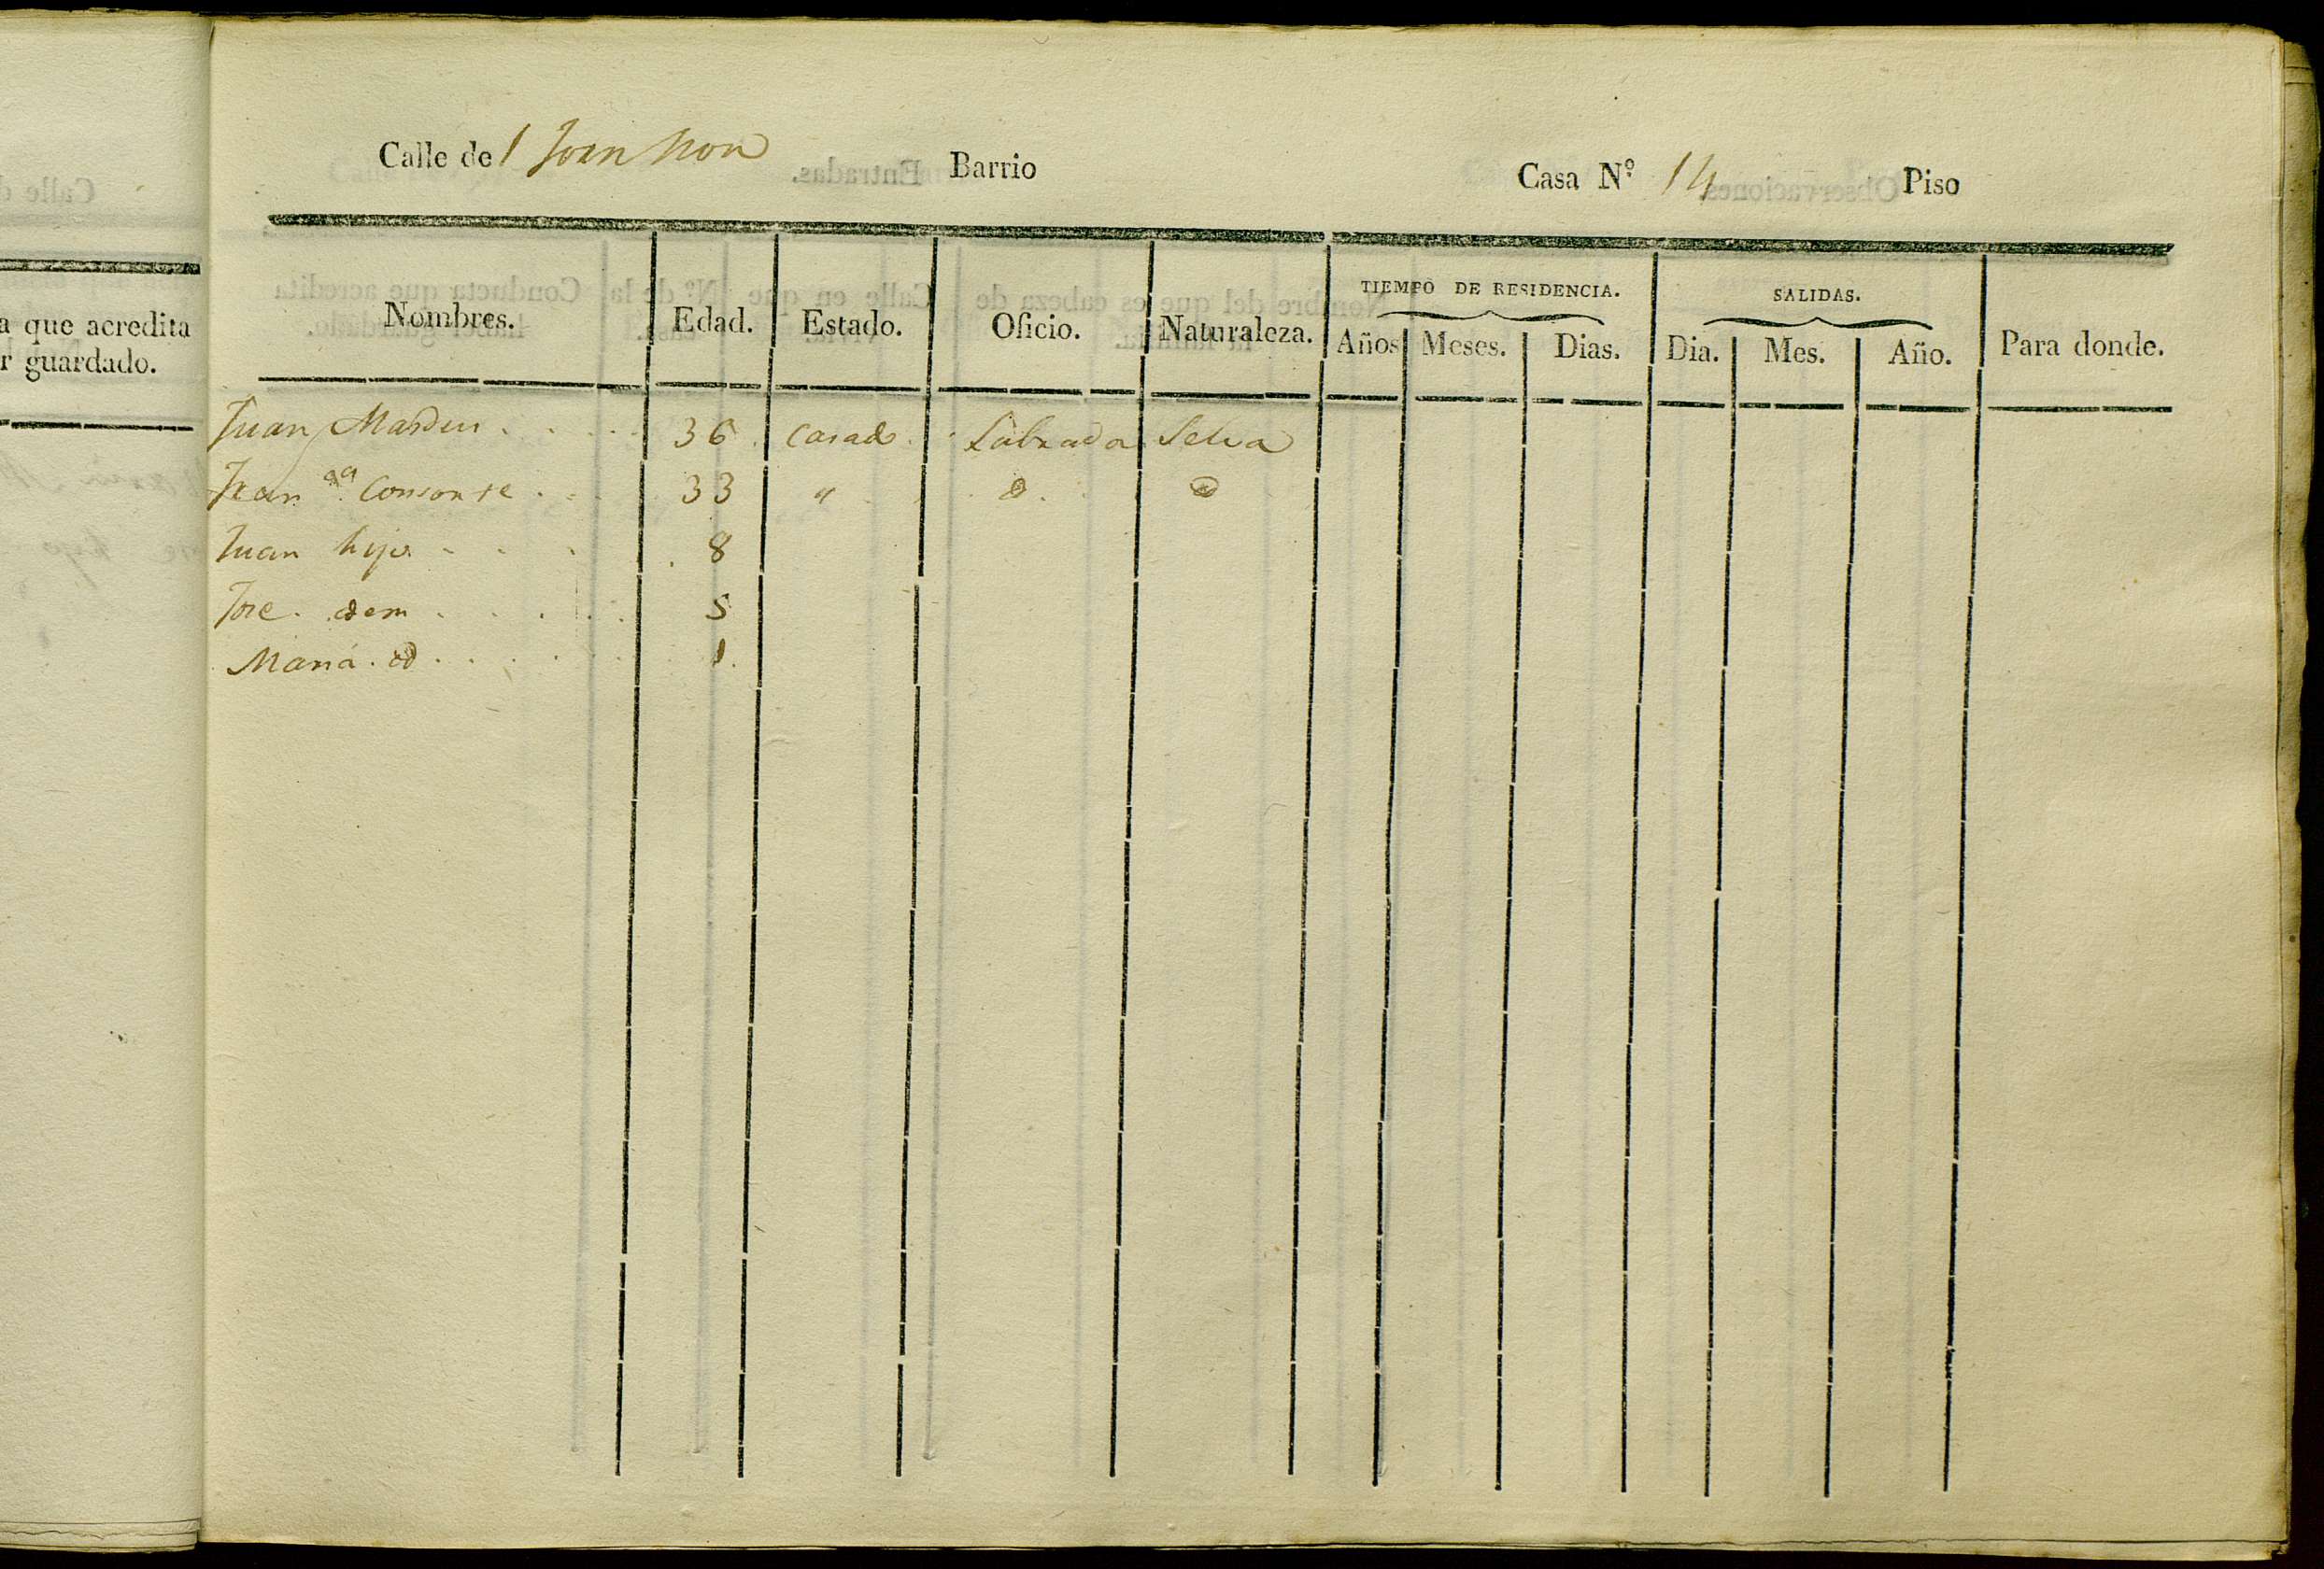 Calle de Barrio Casa Nº 14 Piso
a que acredita
r guardado.
Nombres. Edad. Estado. Oficio. Naturaleza. TIEMPO DE RESIDENCIA. Años Meses. Dias. SALIDAS. Dia. Mes. Año. Para donde.
Juan 36 Casado Labrador Selva
Consorte 33 " d. d
Juan hijo 8
Jose. idem 5
Maria. id 1.